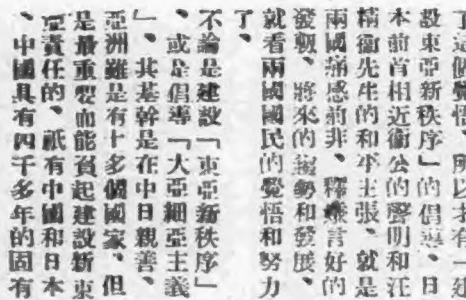 了這個覺悟、所以才有「建
設東亞新秩序」的倡導、日
本前首相近衞公的聲明和汪
精衞先生的和平主張、就是
兩國痛感前非、釋嫌言好的
發軔、將來的趨勢和發展、
就看兩國國民的覺悟和努力
了、
不論是建設「東亞新秩序」
、或是倡導「大亞細亞主義
」、其基幹是在中日親善、
亞洲雖是有十多個國家、但
是最重要而能負起建設新東
亞責任的、祇有中國和日本
、中國具有四千多年的固有